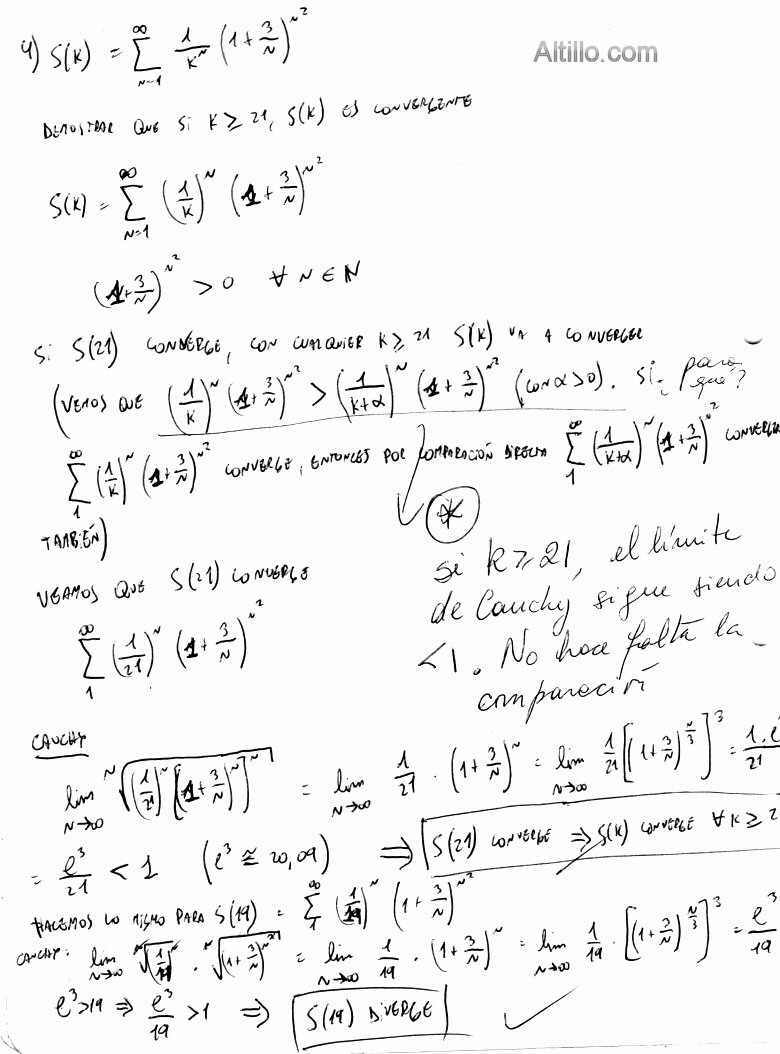 4) S(K) = ∑_{N=1}^{∞} 1/K^N (1 + 3/N)^{N^2}
Altillo.com
DEMOSTRAR QUE SI K ≥ 21, S(K) ES CONVERGENTE
S(K) = ∑_{N=1}^{∞} (1/K)^N (1 + 3/N)^{N^2}
(1 + 3/N)^{N^2} > 0 ∀ N ∈ N
SI S(21) CONVERGE, CON CUALQUIER K ≥ 21 S(K) VA A CONVERGER
(VEMOS QUE (1/K)^N (1 + 3/N)^{N^2} > (1/(K+α))^N (1 + 3/N)^{N^2} (CON α > 0). SI
para qué?
∑_{1}^{∞} (1/K)^N (1 + 3/N)^{N^2} CONVERGE, ENTONCES POR COMPARACIÓN DIRECTA ∑_{1}^{∞} (1/(K+α))^N (1 + 3/N)^{N^2} CONVERGE
TAMBIÉN)
*
si k ≥ 21, el límite
de Cauchy sigue siendo
< 1. No hace falta la
comparación
VEAMOS QUE S(21) CONVERGE
∑_{1}^{∞} (1/21)^N (1 + 3/N)^{N^2}
CAUCHY
lim_{N→∞} ^N√((1/21)^N [(1 + 3/N)^N]^N) = lim_{N→∞} 1/21 · (1 + 3/N)^N = lim_{N→∞} 1/21 [(1 + 3/N)^{N/3}]^3 = 1.e/21
= e^3/21 < 1 (e^3 ≅ 20,09) ⇒ S(21) CONVERGE ⇒ S(K) CONVERGE ∀ K ≥ 2
HACEMOS LO MISMO PARA S(19) = ∑_{1}^{∞} (1/19)^N (1 + 3/N)^{N^2}
CAUCHY: lim_{N→∞} ^N√((1/19)^N) · ^N√((1 + 3/N)^{N^2}) = lim_{N→∞} 1/19 · (1 + 3/N)^N = lim_{N→∞} 1/19 · [(1 + 3/N)^{N/3}]^3 = e^3/19
e^3 > 19 ⇒ e^3/19 > 1 ⇒ S(19) DIVERGE